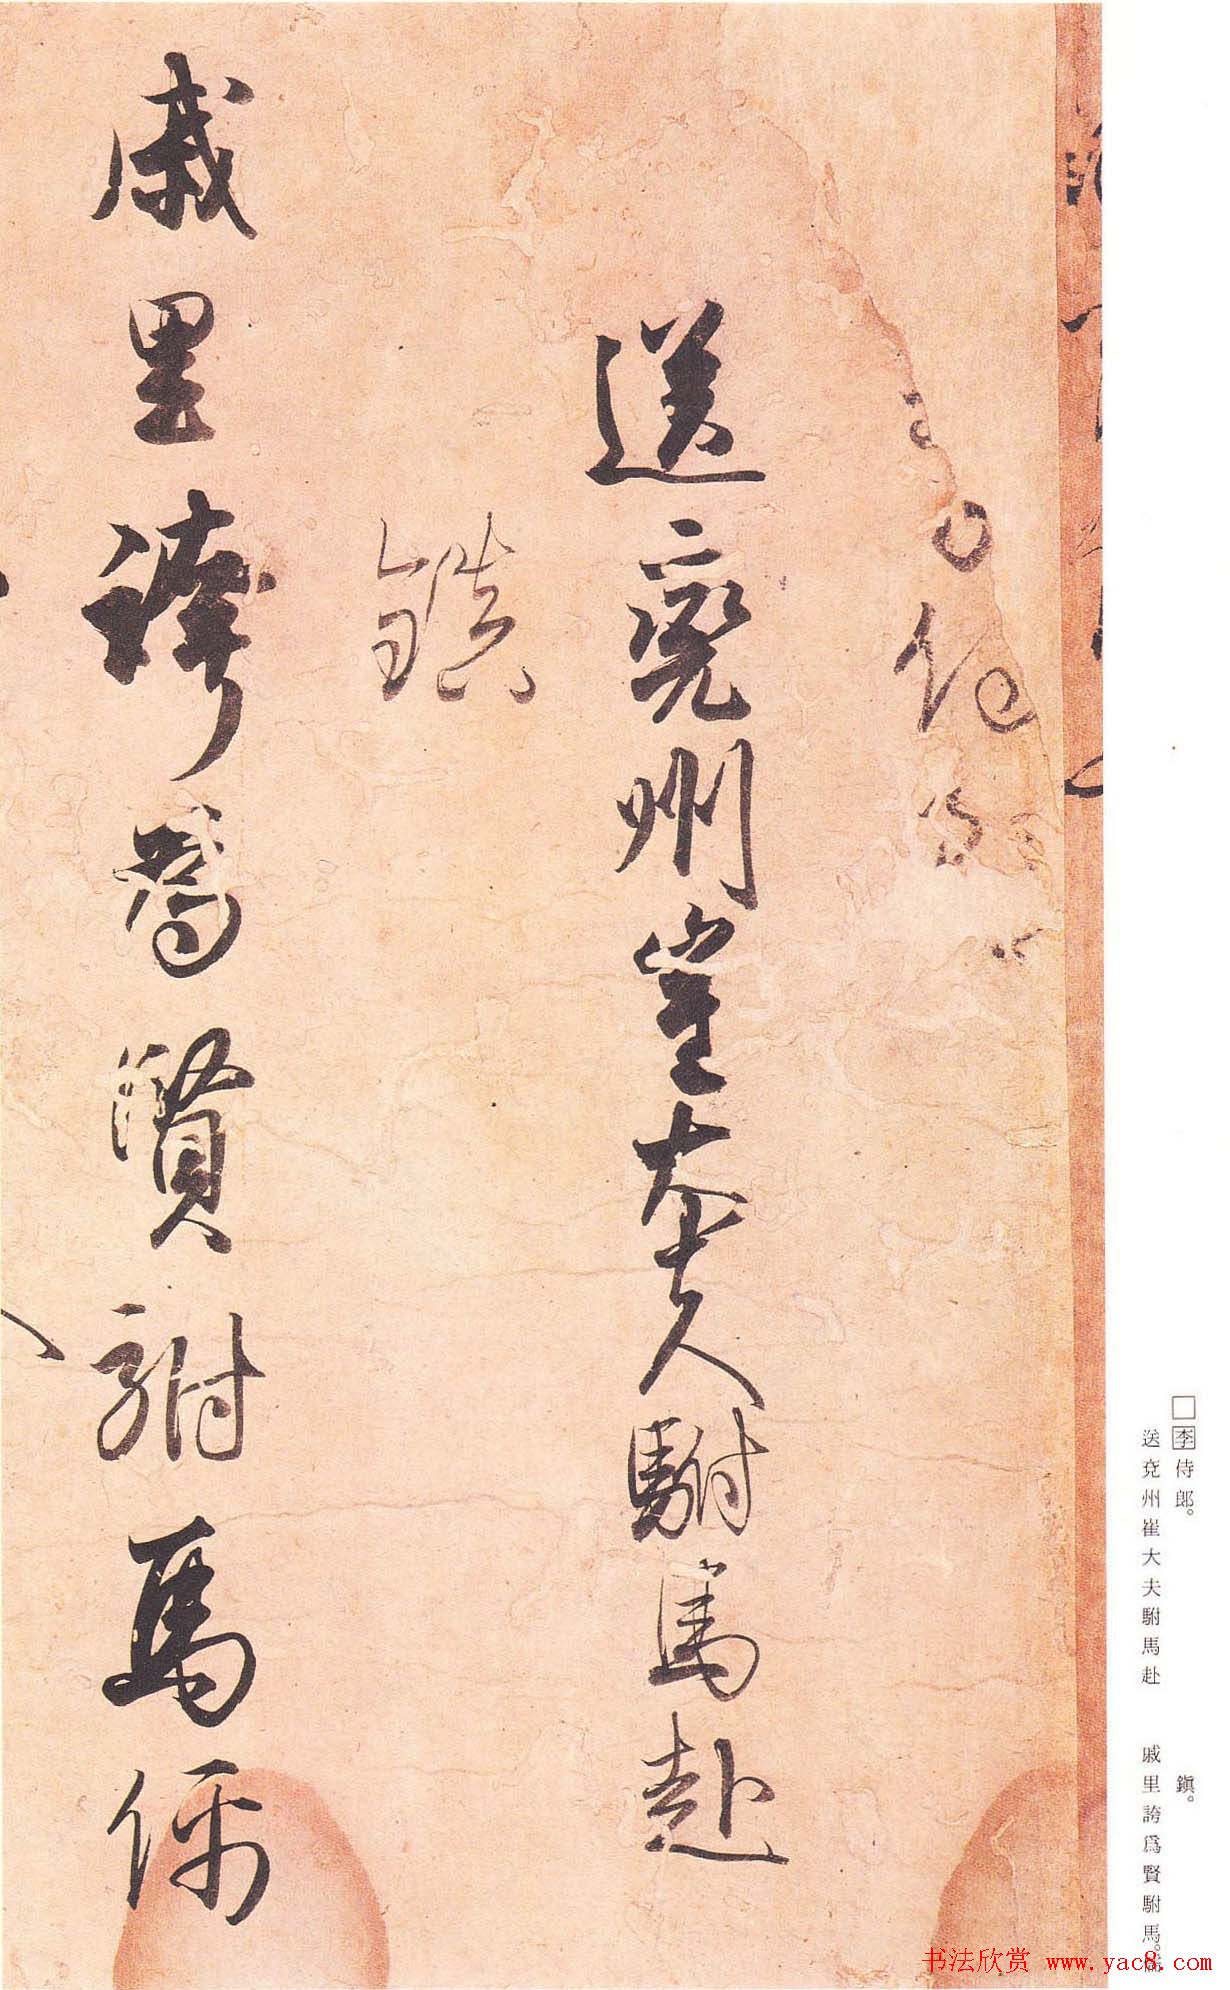 李侍郎
送兗州崔大夫駙馬赴
鎮
戚里誇爲賢駙馬儒
□李侍郎。
送兗州崔大夫駙馬赴
鎭。
戚里誇爲賢駙馬。儒
书法欣赏 www.yac8.com